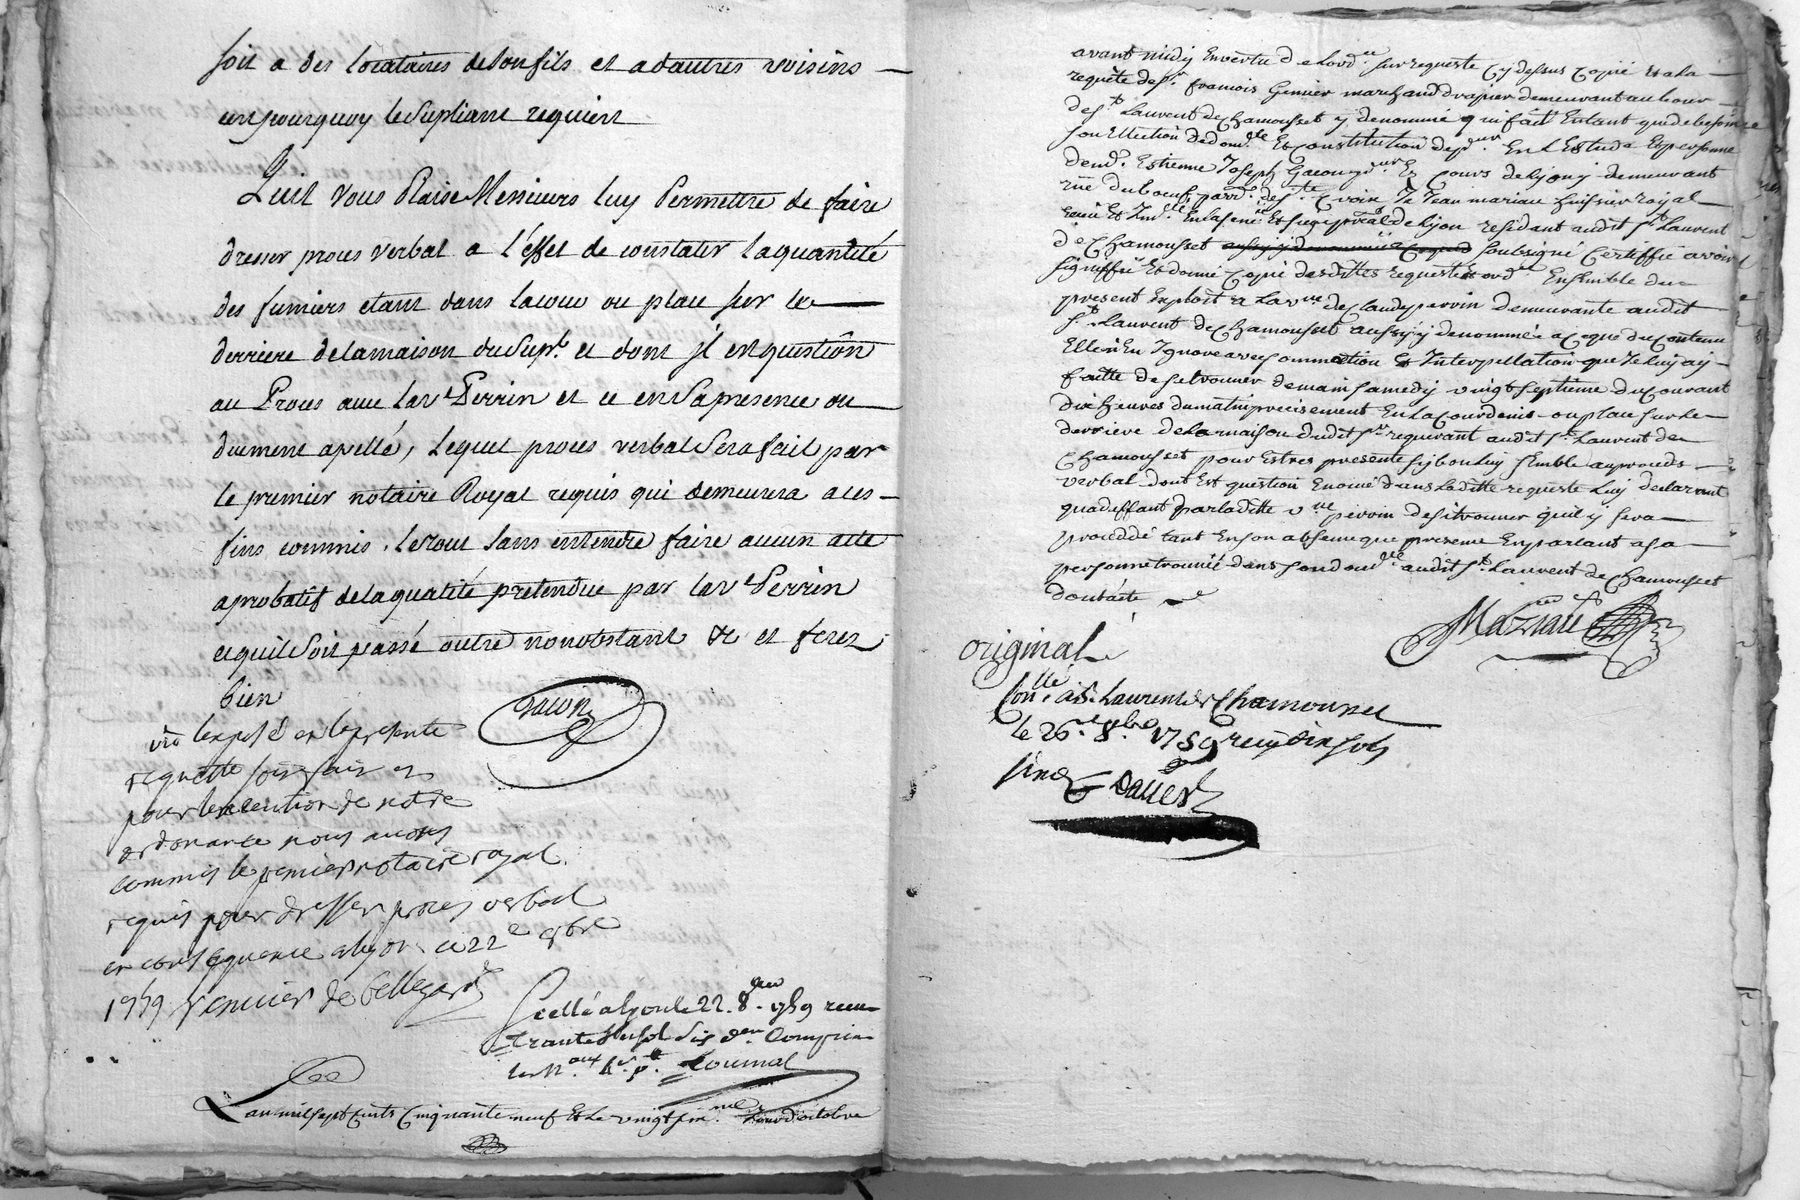 soit a des locataires de son fils et a dautres voisins
cest pourquoy le Supliant requiert
Quil Vous Plaise Messieurs luy Permettre de faire
dresser proces verbal a l'effet de constater la quantité
des fumiers etant dans la cour ou place sur le
derriere de la maison du Supt. et dont jl est question
au Proces avec la ve Perrin et ce en Sa presence ou
duement apellé, lequel proces verbal Sera fait par
le premier notaire Royal requis qui demeurera a ces
fins commis. le tout sans entendre faire aucun acte
aprobatif de la qualité pretendue par la ve Perrin
et quil Soit passé outre nonobstant &c et ferez
bien
vû lexposé en la presente
requette soit fait et
pour lexecution de notre
ordonance nous avons
commis le premier notaire royal
requis pour dresser proces verbal
en consequence a lyon ce 22e 8bre
1759 Vernier de bellegarde
Scellé a lyon le 22. 8bre 1759 recu
trante Sols Six ders Compris
les Naux hs. pt. Tournal
L'an mil sept cents Cinquante neuf Et le vingt sixme jour d'octobre
avant midy En vertu de L'ordce sur requeste Cy dessus Copié Et a la
requête de sr françois Grenier marchand drapier demeurant au bourg
de st Laurent de Chamousset y denommé qui fait En tant que de besoin
son Ellection de domlle Et Constitution de pcur En L'Estude Et personne
de me Estienne Joseph pcur Es Cours de Lyon y demeurant
rüe du boeuf parr. de ste Croix Je Jean mariau huissier royal
Lyon residant audit st Laurent
de Chamousset soubsigné Certiffie avoir
signiffié Et donné Copie desdittes requeste Et ordce Ensemble du
present Exploit a La vve de Claude perrin demeurante audit
st Laurent de Chamousset aussy y denommée a ce que du Contenu
Elle n'En Ignore avec sommation Et Interpellation que Je luy ay
faitte de se trouver demain samedy vingt septieme du Courant
dix heures du matin precisement En La Cour de ou place sur Le
derriere de La maison dudit sr requerant audit st Laurent de
Chamousset pour Estre presente sy bon luy semble au proces
verbal dont Est question Enoncé dans Laditte requeste Luy declarant
qua deffaut par laditte vve perrin de s'y trouver quil y sera
procedé tant En son absence que presence En parlant a sa
personne trouvée dans son domlle audit st Laurent de Chamousset
dont acte
Mariau
original
Conllé a St. Laurent de Chamousset
le 26e 8bre 1759 reçu dix sols